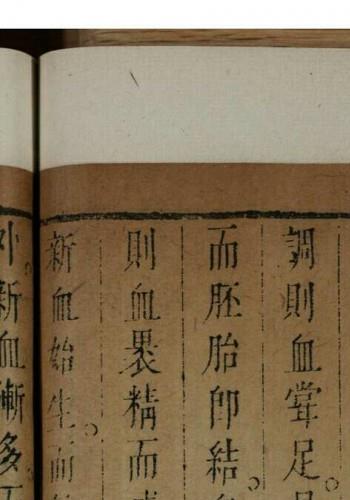 調則血常足
而胚胎卽結
則血裹精而
新血始生。而
外。新血漸多